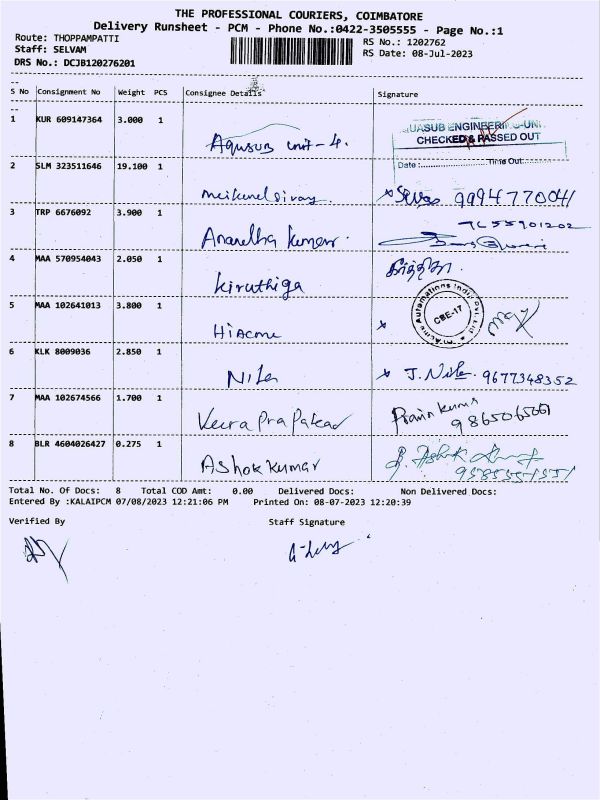 THE PROFESSIONAL COURIERS, COIMBATORE
Delivery Runsheet - PCM - Phone No.:0422-3505555 - Page No.:1
Route: THOPPAMPATTI
RS No.: 1202762
Staff: SELVAM
RS Date: 08-Jul-2023
DRS No.: DCJB120276201
S No Consignment No Weight PCS Consignee Details Signature
1 KUR 609147364 3.000 1 Aqusub unit-4.
UASUB ENGINEERING-UNI
CHECKED & PASSED OUT
Date: Time Out:
2 SLM 323511646 19.100 1 9994770041
3 TRP 6676092 3.900 1 Anandha Kumar.
4 MAA 570954043 2.050 1 Kiruthiga கிருத்திகா.
5 MAA 102641013 3.800 1 HiAcme
Acme Automations India Pvt. Ltd
CBE-17
6 KLK 8009036 2.850 1 Nila J. Nila 9677348352
7 MAA 102674566 1.700 1 Veera Prapakar
8 BLR 4604026427 0.275 1 Ashok kumar
Total No. Of Docs: 8 Total COD Amt: 0.00 Delivered Docs: Non Delivered Docs:
Entered By :KALAIPCM 07/08/2023 12:21:06 PM Printed On: 08-07-2023 12:20:39
Verified By Staff Signature